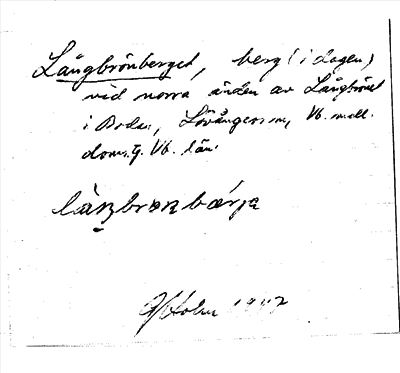 Långbrönberget, berg (i dagen)
vid norra änden av Långbrönet
i Boden, Lövångers sn, Vb. mell.
doms. Vb. län.
G Holm 1947